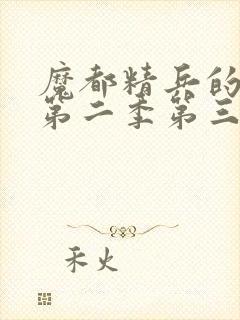 魔都精兵的
第二季第三
禾火